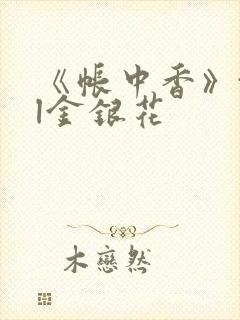 《帐中香》
|金银花
木恋然